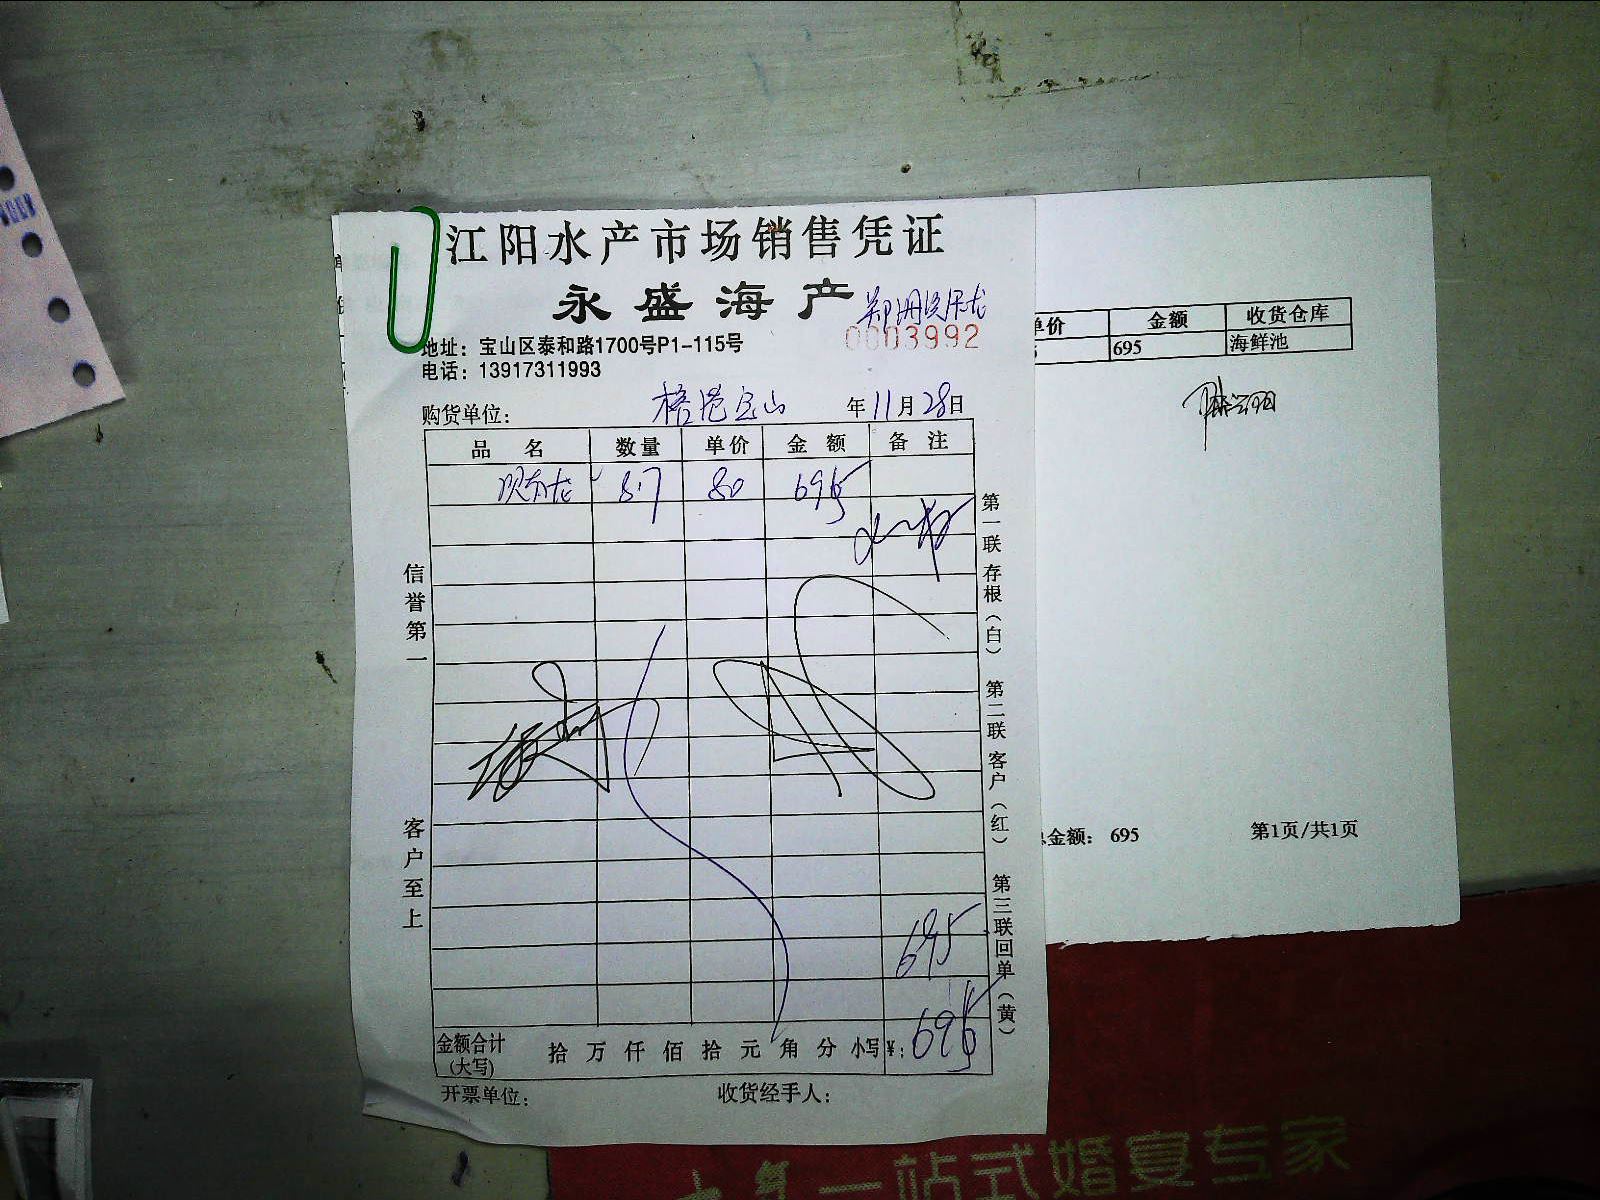 江阳水产市场销售凭证
永盛海产
0003992
地址：宝山区泰和路1700号P1-115号
电话：13917311993
购货单位： 宝山 年11月28日
品名 数量 单价 金额 备注
8.7 80 695
信誉第一
客户至上
第一联存根（白） 第二联客户（红） 第三联回单（黄）
695
金额合计(大写) 拾万仟佰拾元角分 小写¥：695
开票单位： 收货经手人：
单价 金额 收货仓库
695 海鲜池
总金额： 695 第1页/共1页
一站式婚宴专家